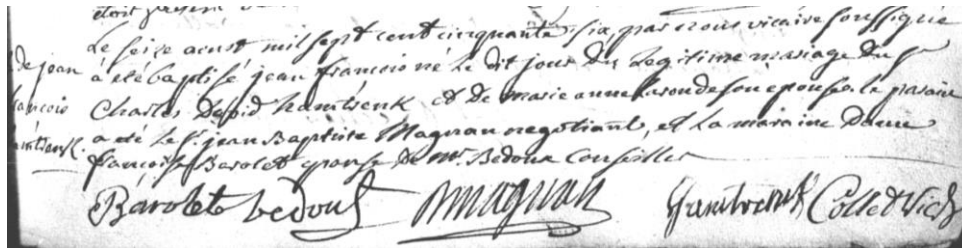 étoit présent
Le seize aoust mil sept cent cinquante six, par nous vicaire soussigné
de jean à été baptisé jean françois né Le dit jour Du Legitime mariage du Sr
françois Charles David hamtrenk et De marie anne Laronde son epouse, le parain
a été Le Sr. jean Baptiste Magnan negotiant, et La maraine Dame
françoise Barolet epouse De mr. Bedout Conseiller
Barolete bedout Magnan Colled Vic